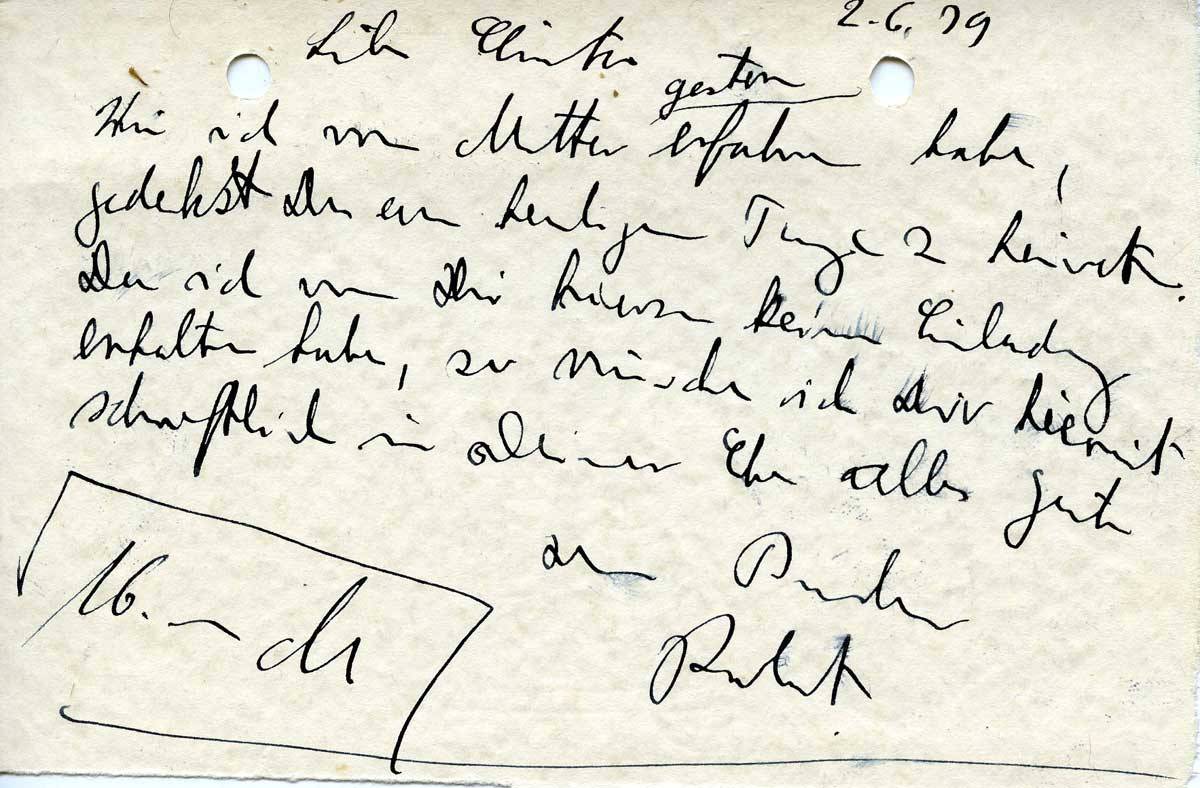 2.6.79
Liebe
gestern
Wie ich von Mutter erfahren habe,
gedenkst Du am heutigen Tage z
Da ich von Dir hierzu keine Einladung
erhalten habe, so wünsche ich Dir hiermit
schriftlich in Deiner Ehe alles gute
Dein Bruder
16.-